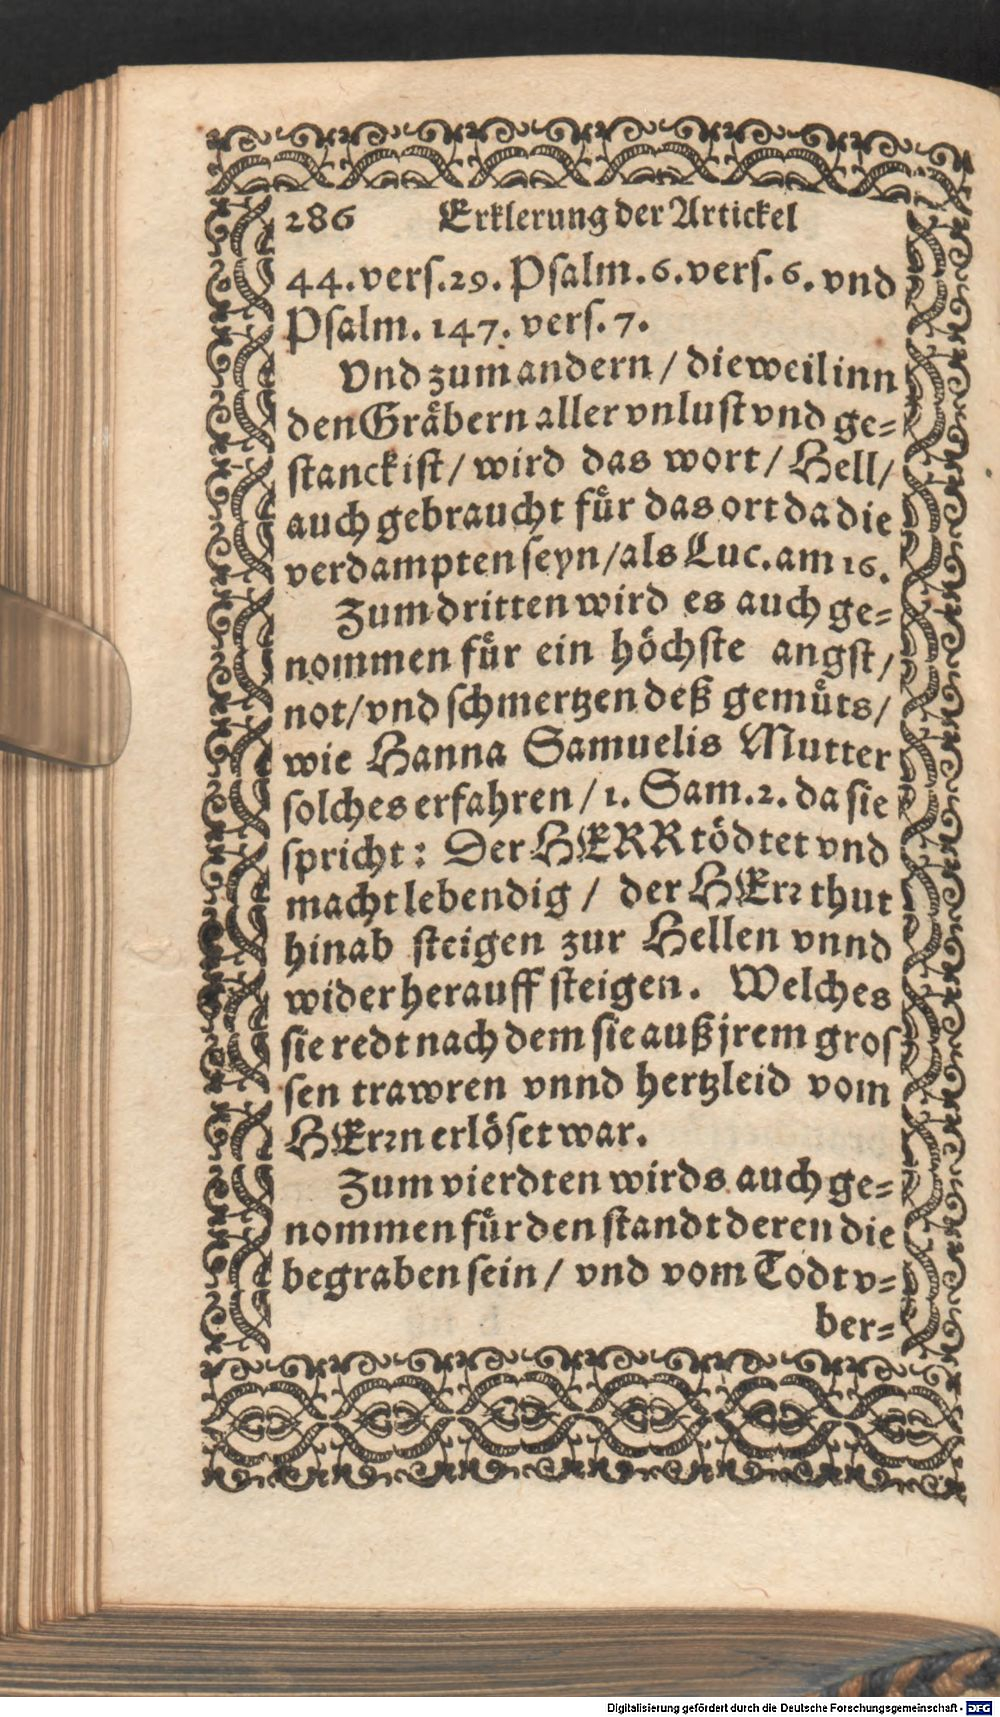 286 Erklerung der Artickel
44. vers. 29. Psalm. 6. vers. 6. vnd
Psalm. 147. vers. 7.
Vnd zum andern / dieweil inn
den Gråbern aller vnlust vnd ge=
stanck ist / wird das wort / Hell /
auch gebraucht fuͤr das ort da die
verdampten seyn / als Luc. am 16.
Zum dritten wird es auch ge=
nommen fuͤr ein hoͤchste angst /
not / vnd schmertzen deß gemuͤts /
wie Hanna Samuelis Mutter
solches erfahren / 1. Sam. 2. da sie
spricht: Der HERR toͤdtet vnd
macht lebendig / der HErr thut
hinab steigen zur Hellen vnnd
wider herauff steigen. Welches
sie redt nach dem sie auß jrem gros
sen trawren vnnd hertzleid vom
HErrn erloͤset war.
Zum vierdten wirds auch ge=
nommen fuͤr den standt deren die
begraben sein / vnd vom Todt v=
ber=
Digitalisierung gefördert durch die Deutsche Forschungsgemeinschaft - DFG